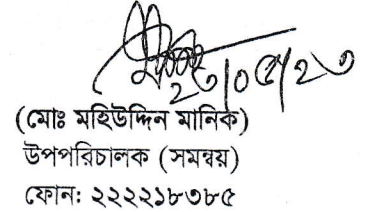 ২৩/০৫/২৩
(মোঃ মহিউদ্দিন মানিক)
উপপরিচালক (সমন্বয়)
ফোন: ২২২২১৮৩৮৫